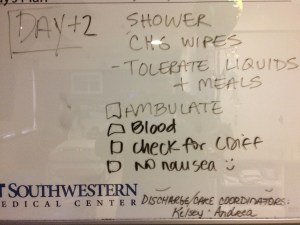 y's Plan
DAY+2
SHOWER
CHG WIPES
- TOLERATE LIQUIDS
+ MEALS
AMBULATE
Blood
check for CDiff
NO nausea
SOUTHWESTERN
MEDICAL CENTER
DISCHARGE/CARE COORDINATORS:
Kelsey - Andrea